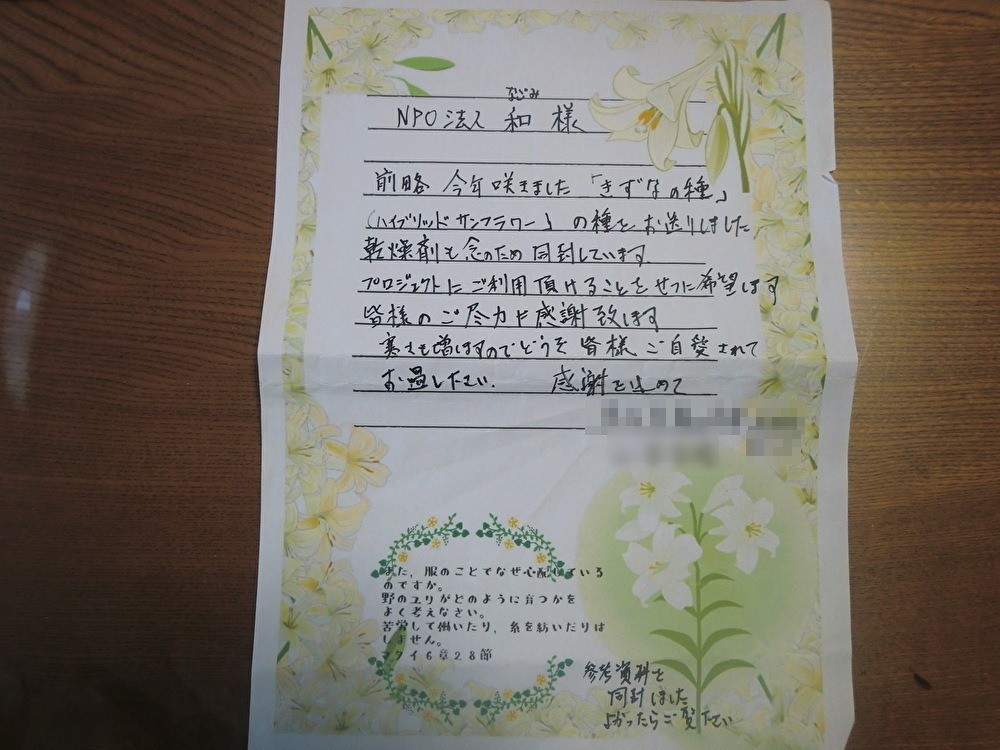 なごみ
NPO法人 和 様
前略 今年 咲きました「きずなの種」
(ハイブリッドサンフラワー) の種を お送りしました
乾燥剤も念のため同封しています
プロジェクトにご利用頂けることをせつに希望します
皆様のご尽力に感謝致します
寒さも増しますのでどうぞ 皆様 ご自愛されて
お過しください. 感謝を込めて
また, 服のことでなぜ心配しているのですか。
野のユリがどのように育つかを
よく考えなさい。
苦労して働いたり, 糸を紡いだりは
しません。
マタイ6章28節
参考資料を
同封しました
よかったらご覧下さい